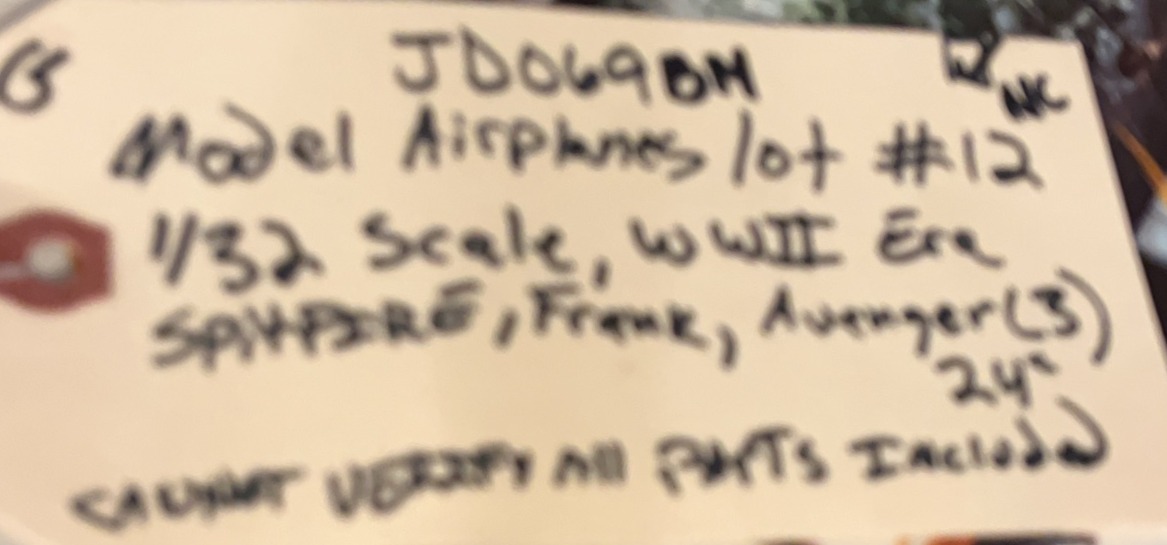 JD069BM
NC
Model Airplanes lot #12
1/32 Scale, WWII Era
SPITFIRE, Frank, Avenger (3)
24"
CANNOT VERIFY All PARTS Included